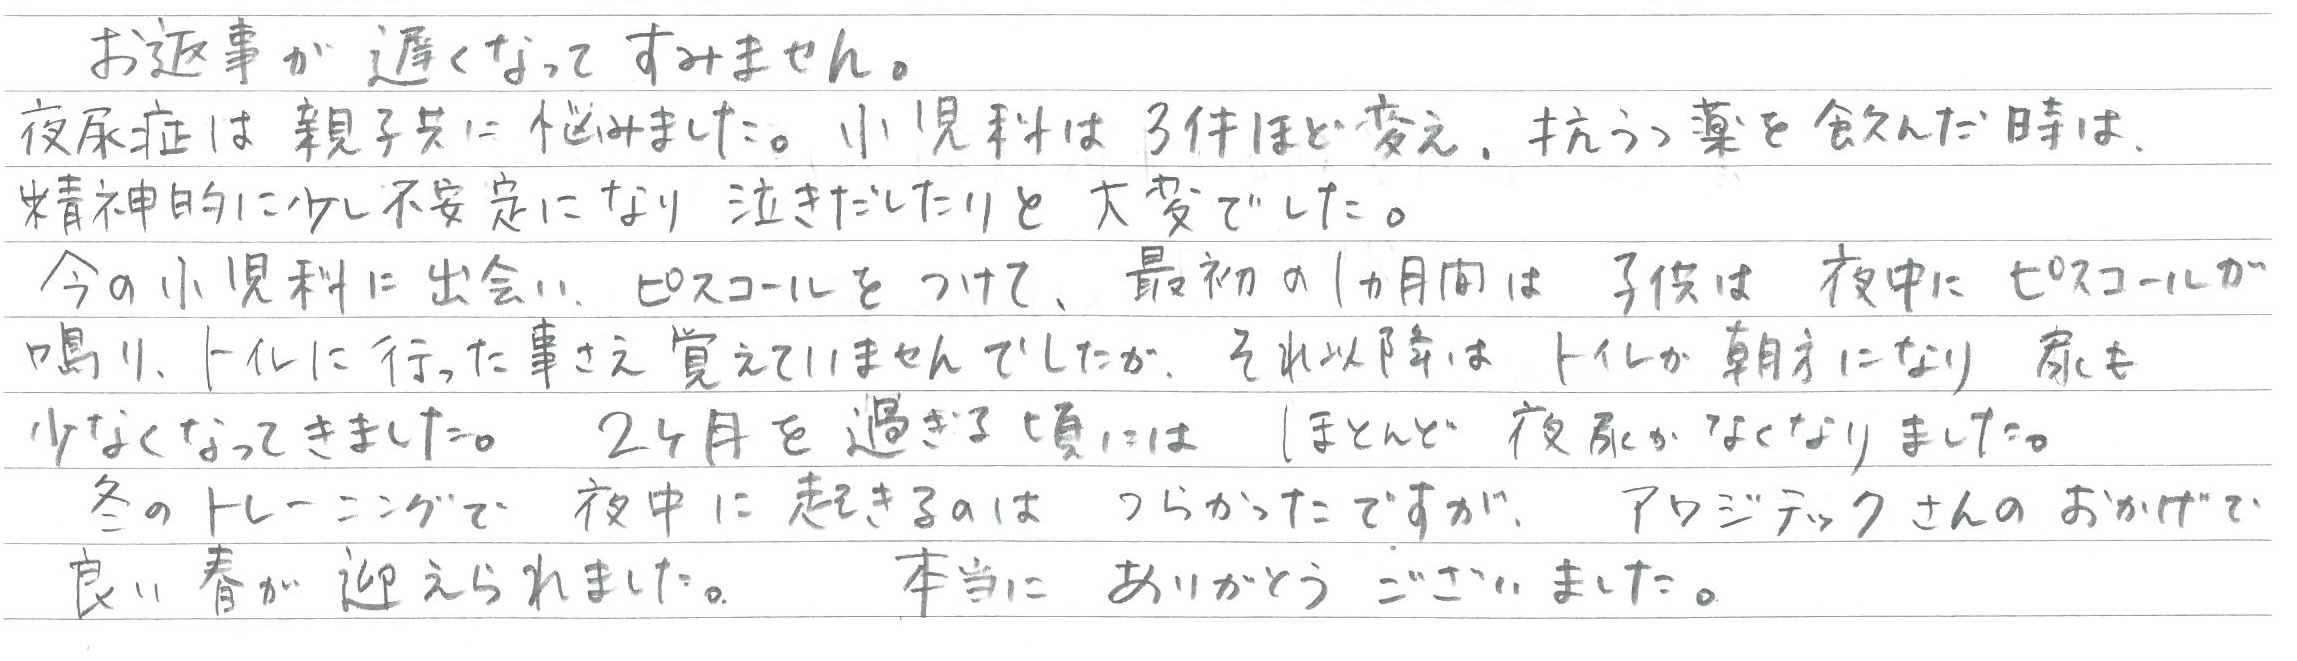 お返事が遅くなってすみません。
夜尿症は親子共に悩みました。小児科は3件ほど変え、抗うつ薬を飲んだ時は、
精神的に少し不安定になり泣きだしたりと大変でした。
今の小児科に出会い、ピスコールをつけて、最初の1ヵ月間は子供は夜中にピスコールが
鳴り、トイレに行った事さえ覚えていませんでしたが、それ以降はトイレが朝方になり尿も
少なくなってきました。2ヶ月を過ぎる頃にはほとんど夜尿がなくなりました。
冬のトレーニングで夜中に起きるのはつらかったですが、アワジテックさんのおかげで
良い春が迎えられました。本当にありがとうございました。